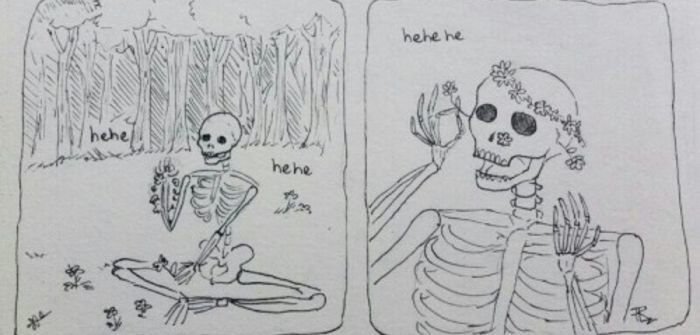 hehe
hehe
hehe he